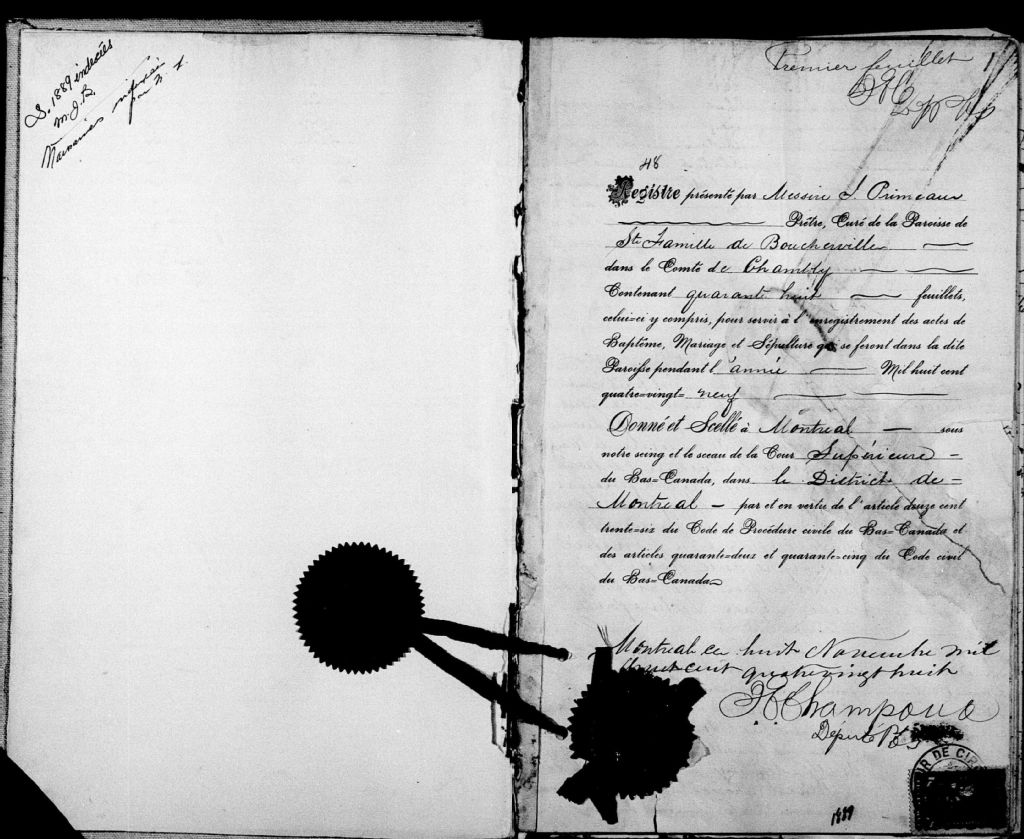 S. 1889 indexées
M.J.B.
Mariages
par
Premier feuillet
48
Registre présenté par Messire J. Primeau
Prêtre, Curé de la Paroisse de
Ste Famille de Boucherville
dans le Comté de Chambly
Contenant quarante huit feuillets,
celui=ci y compris, pour servir à l'enregistrement des actes de
Baptême, Mariage et Sépulture qui se feront dans la dite
Paroisse pendant l'année Mil huit cent
quatre=vingt= neuf
Donné et Scellé à Montreal sous
notre seing et le sceau de la Cour Supérieure =
du Bas=Canada, dans le District de =
Montreal par et en vertu de l'article douze cent
trente=six du Code de Procédure civile du Bas=Canada et
des articles quarante=deux et quarante=cinq du Code civil
du Bas=Canada
Montreal ce huit Novembre mil
huit cent quatre vingt huit
Champoux
Député P
DE CIR
1889